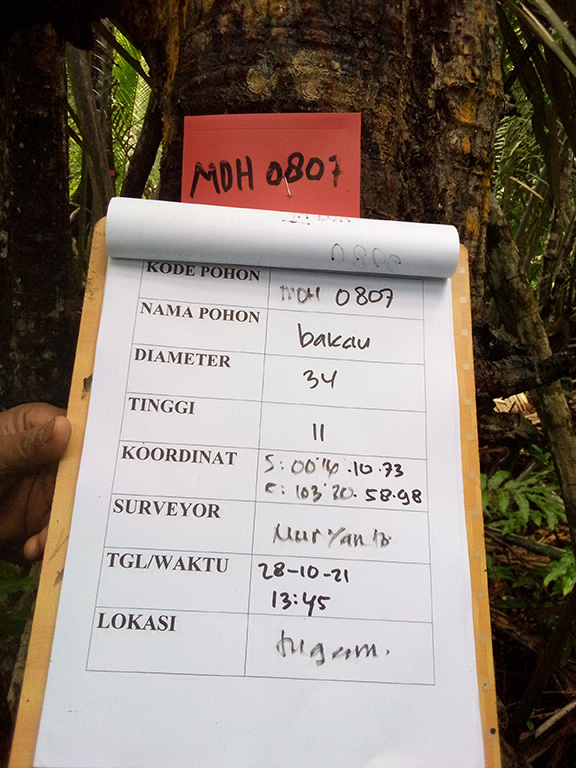 MDH 0807
KODE POHON MDH 0807
NAMA POHON bakau
DIAMETER 34
TINGGI 11
KOORDINAT S: 00°10.10.73
E: 103°20.58.98
SURVEYOR Nuryanto
TGL/WAKTU 28-10-21
13:45
LOKASI